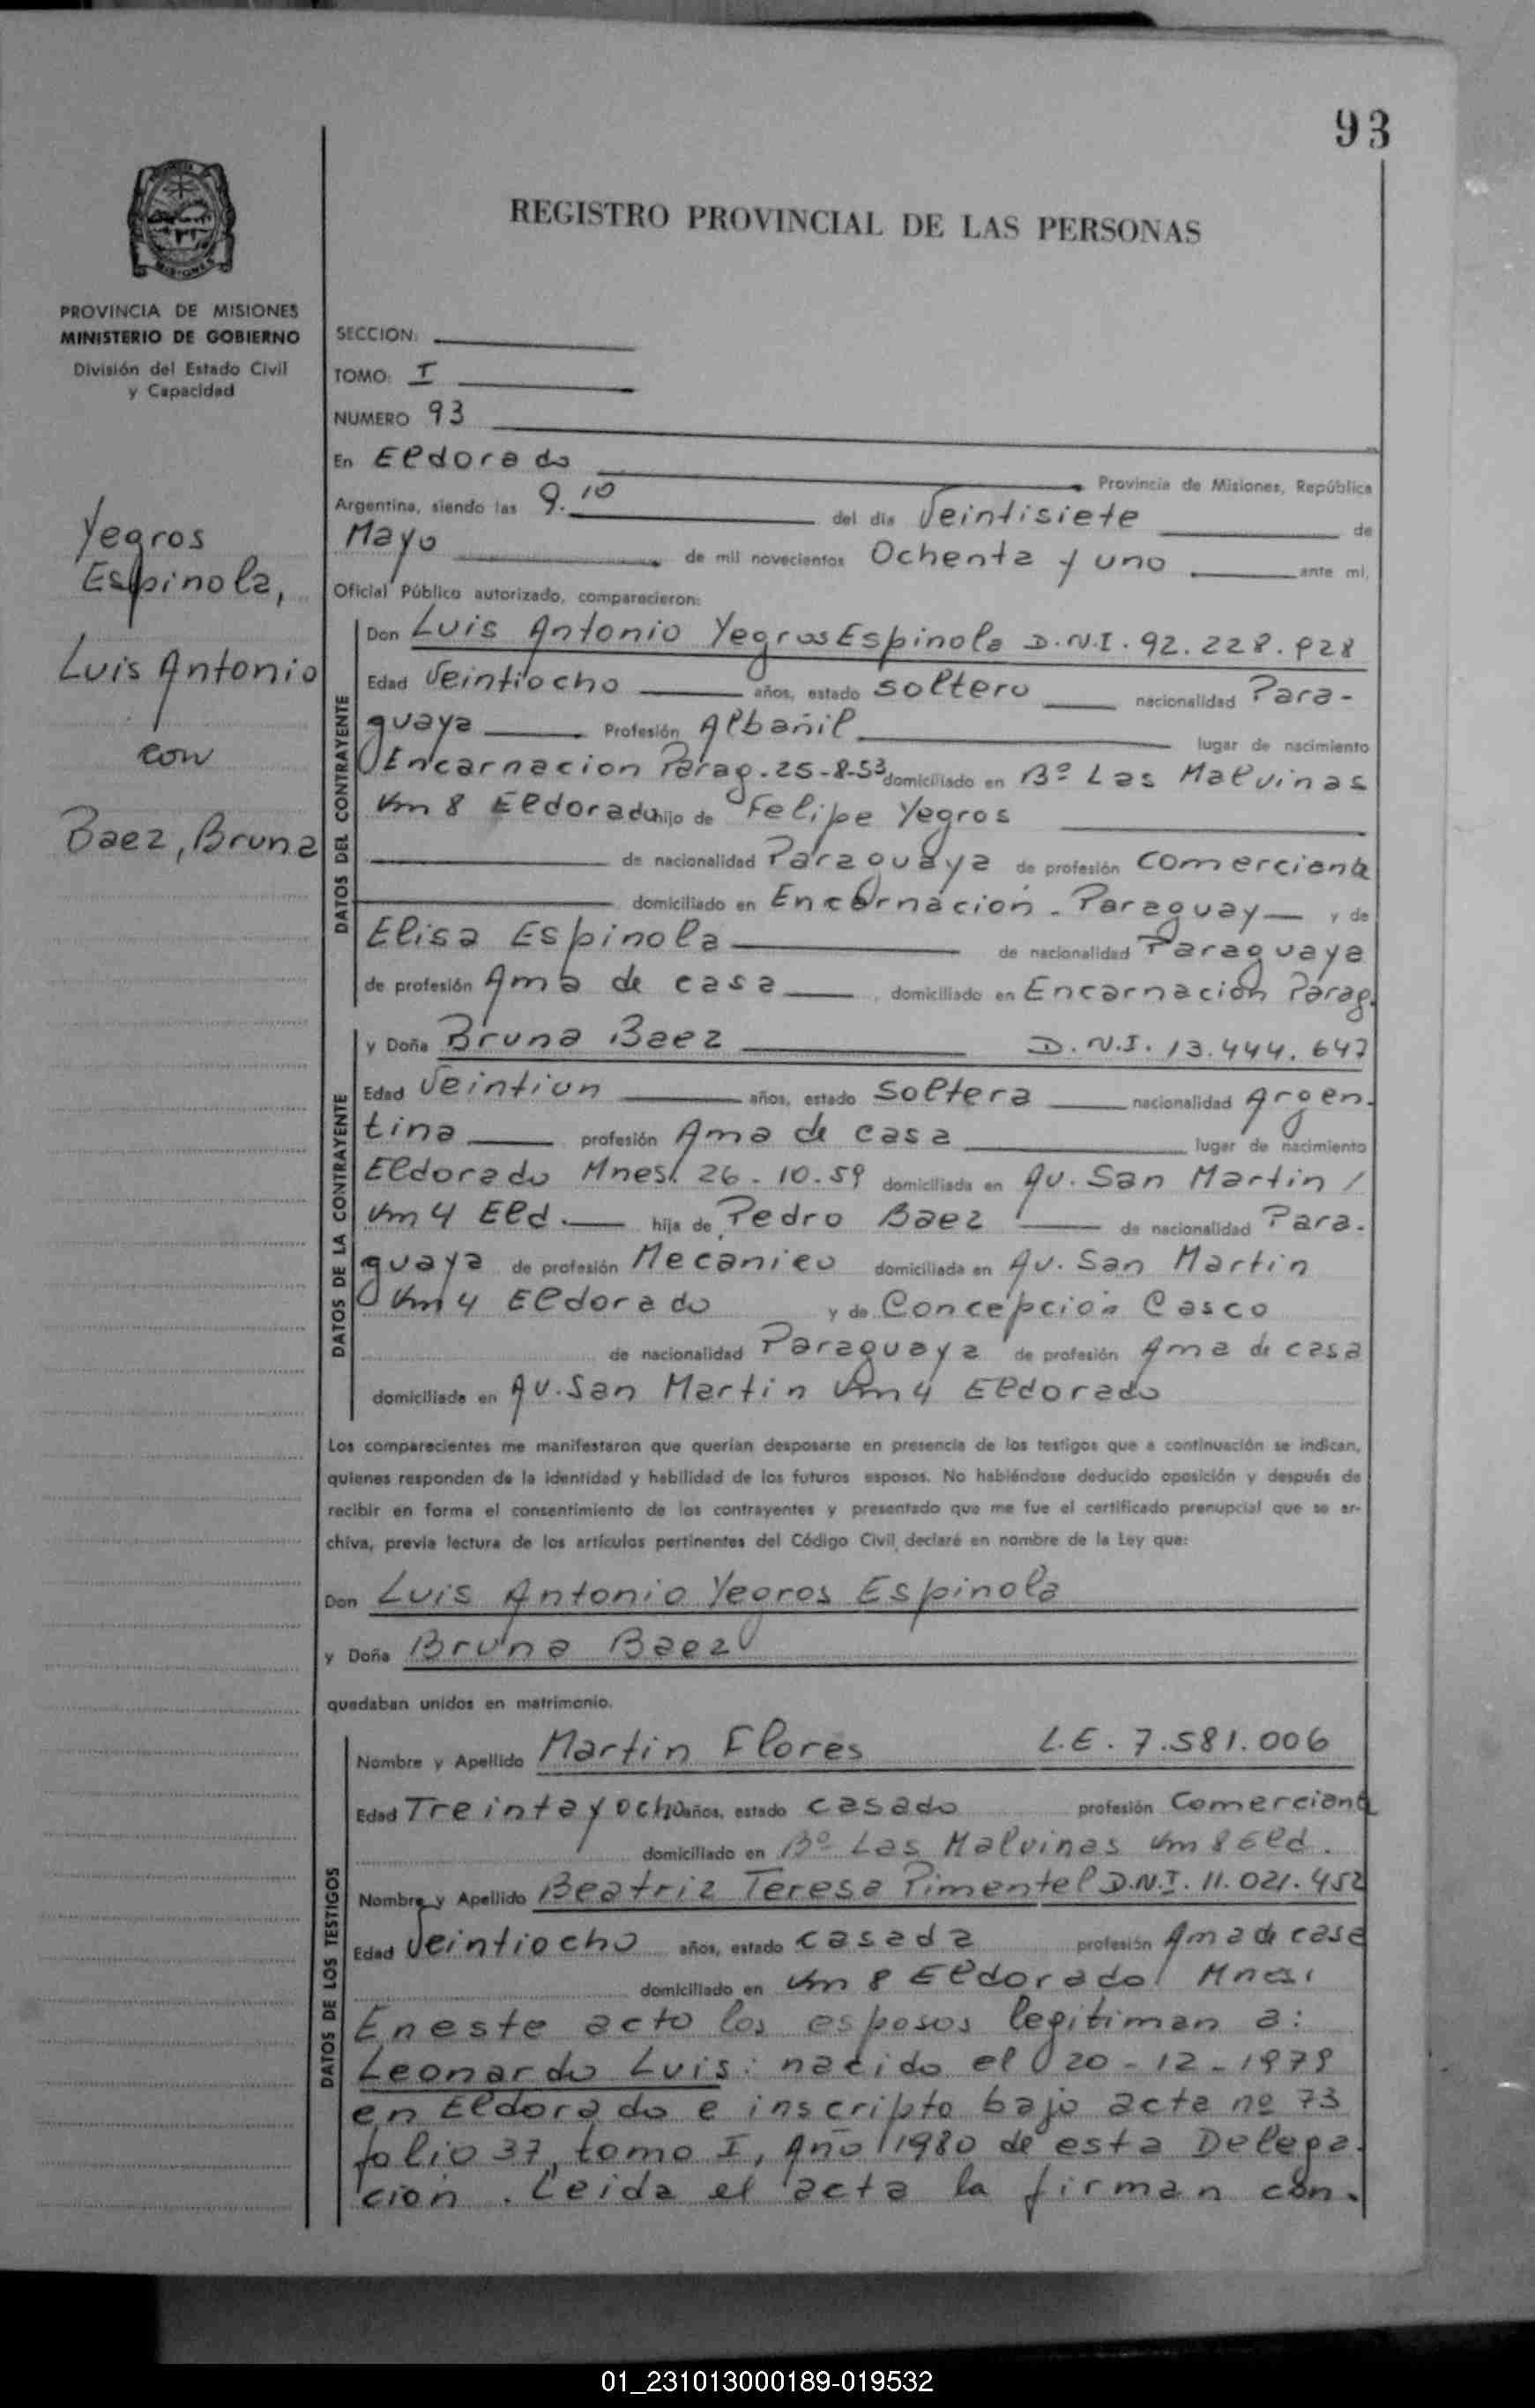 93
REGISTRO PROVINCIAL DE LAS PERSONAS
MISIONES
PROVINCIA DE MISIONES
MINISTERIO DE GOBIERNO
División del Estado Civil
y Capacidad
Yegros
Espinola,
Luis Antonio
con
Baez, Bruna
SECCION:
TOMO: I
NUMERO 93
En Eldorado Provincia de Misiones, República
Argentina, siendo las 9.10 del día Veintisiete de
Mayo de mil novecientos Ochenta y uno ante mí,
Oficial Público autorizado, comparecieron:
DATOS DEL CONTRAYENTE
Don Luis Antonio Yegros Espinola D.N.I. 92.228.828
Edad Veintiocho años, estado soltero nacionalidad Para-
guaya Profesión Albañil lugar de nacimiento
Encarnacion Parag. 25-8-53 domiciliado en Bº Las Malvinas
Km 8 Eldorado hijo de Felipe Yegros
de nacionalidad Paraguaya de profesión Comerciante
domiciliado en Encarnación - Paraguay y de
Elisa Espinola de nacionalidad Paraguaya
de profesión Ama de casa, domiciliado en Encarnación Parag.
DATOS DE LA CONTRAYENTE
y Doña Bruna Baez D.N.I. 13.444.647
Edad Veintiun años, estado Soltera nacionalidad Argen-
tina profesión Ama de casa lugar de nacimiento
Eldorado Mnes. 26-10-59 domiciliada en Av. San Martin /
Km 4 Eld. hija de Pedro Baez de nacionalidad Para-
guaya de profesión Mecanico domiciliada en Av. San Martin
Km 4 Eldorado y de Concepción Casco
de nacionalidad Paraguaya de profesión Ama de casa
domiciliada en Av. San Martin Km 4 Eldorado
Los comparecientes me manifestaron que querían desposarse en presencia de los testigos que a continuación se indican,
quienes responden de la identidad y habilidad de los futuros esposos. No habiéndose deducido oposición y después de
recibir en forma el consentimiento de los contrayentes y presentado que me fue el certificado prenupcial que se ar-
chiva, previa lectura de los artículos pertinentes del Código Civil, declaré en nombre de la Ley que:
Don Luis Antonio Yegros Espinola
y Doña Bruna Baez
quedaban unidos en matrimonio.
DATOS DE LOS TESTIGOS
Nombre y Apellido Martin Flores L.E. 7.581.006
Edad Treinta y ocho años, estado casado profesión Comerciante
domiciliado en Bº Las Malvinas Km 8 Eld.
Nombre y Apellido Beatriz Teresa Pimentel D.N.I. 11.021.452
Edad Veintiocho años, estado casada profesión Ama de casa
domiciliado en Km 8 Eldorado Mnes.
En este acto los esposos legitiman a:
Leonardo Luis: nacido el 20-12-1979
en Eldorado e inscripto bajo acta nº 73
folio 37, tomo I, Año 1980 de esta Delega-
cion. Leida el acta la firman con-
01_231013000189-019532